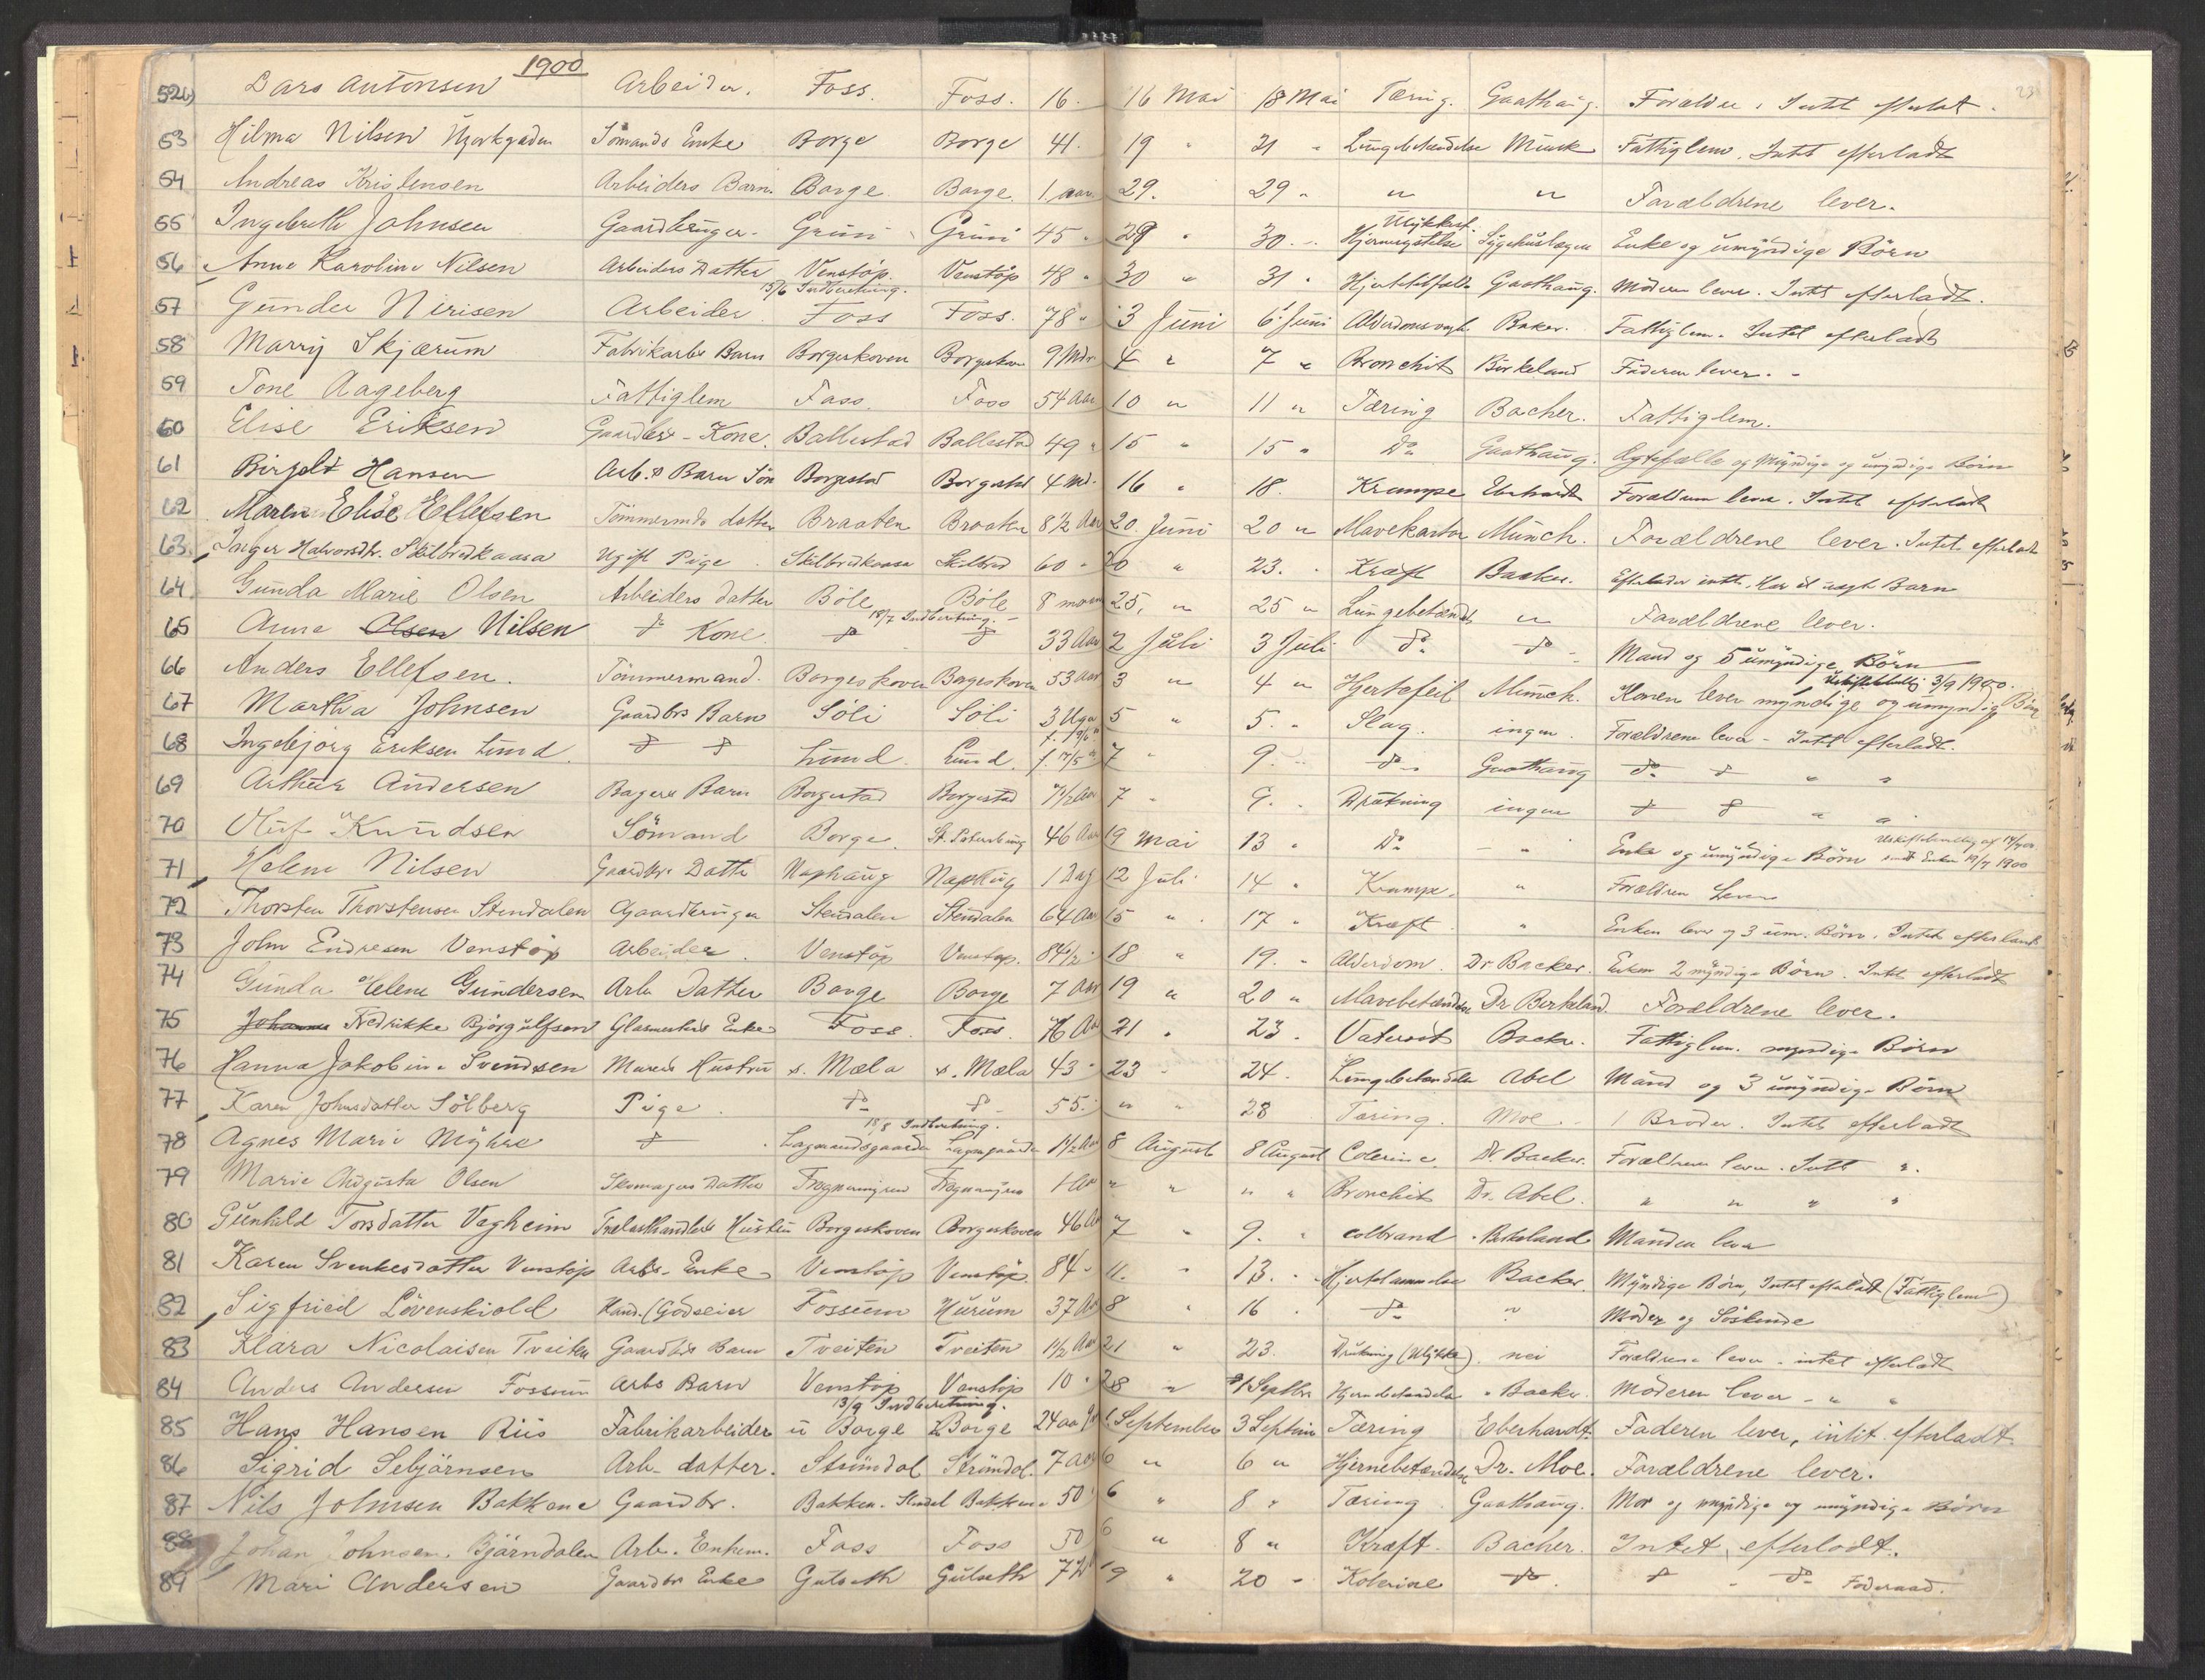 1900
23
52 Lars Antonsen Arbeider. Foss. Foss. 16. 16 Mai 18 Mai Tæring. Gaathaug. Forældre. Intet efterladt.
53 Hilma Nilsen Sømands Enke Borge Borge 41. 19 " 21 " Lungebetændelse Münck Fattiglem. Intet efterladt
54 Andreas Kristensen Arbeiders Barn. Borge Borge. 1 aar. 29. 29 " " " Forældrene lever.
55 Ingebreth Johnsen Gaardbruger. Grini Grini 45 " 29 " 30. " Ulykkest. Hjernerystelse Sygehuslægen Enke og umyndige Børn
56 Anne Karoline Nilsen Arbeiders Datter Venstøp. Venstøp 48 " 30 " 31 " Hjertetilfælde Gaathaug. Moderen lever. Intet efterladt.
15/6 Indberetning.
57 Gunder Nirisen Arbeider Foss Foss. 78 " 3 Juni 6 Juni Alderdomssvagh. Baker. Fattiglem. Intet efterladt
58 Marry Skjærum Fabrikarbs Barn Borgeskoven Borgeskoven 9 Mdr 4 " 7 " Bronchit Birkeland Faderen lever. "
59 Tone Aageberg Fattiglem Foss Foss 54 Aar 10 " 11 " Tæring Bacher. Fattiglem.
60 Elise Eriksen Gaardbr. Kone. Ballestad Ballestad 49 " 15 " 15 " Do Gaathaug. Ægtefælle og Myndige og umyndige Børn
61 Birgelt Hansen Arb.s Barn Søn Borgestad Borgestad 4 Md. 16 " 18. Krampe Eberhardt Forældrene lever. Intet efterladt
62 Maren Elise Ellefsen Tømmermds datter Braaten Braaten 8 1/2 Aar 20 Juni 20 " Mavekatar Münch. Forældrene lever. Intet efterladt
63. Inger Halvorsdtr. Skilbredkaasa Ugift Pige Skilbredkaasa Skilbred 60 " 20 " 23. " Kræft Backer. Efterlader intet. Har et uægte Barn
64. Gunda Marie Olsen Arbeiders datter Bøle Bøle 8 maaned 25. " 25 " Lungebetændels " Forældrene lever.
18/7 Indberetning.
65 Anna Olsen Nilsen do Kone do do 33 Aar 2 Juli 3 Juli do do Mand og 5 umyndige Børn
66 Anders Ellefsen. Tømmermand. Borgeskoven Borgeskoven 53 Aar 3 " 4 " Hjertefeil Münch. Konen lever myndige og umyndige Børn
3/9 1900.
67 Martha Johnsen Gaardbrs Barn Søli Søli 3 Uger 5 " 5. " Slag. ingen. Forældrene lever. Intet efterladt.
68 Ingebjørg Eriksen Lund. do do Lund. Lund. f. 17/5 7 " 9. " do Gaathaug do do " "
69 Arthur Andersen Bagers Barn Borgestad Borgestad 7 1/2 Aar 7 " 9. " Drukning ingen do do " "
70 Oluf Knudsen Sømand Borge. St. Petersburg 46 Aar 19 Mai 13 " Do " Enke og umyndige Børn
sendt Enken 19/7 1900
71 Helene Nilsen Gaardbrs Datter Naphaug Naphaug 1 Dag 12 Juli 14 " Krampe. " Forældren Lever
72 Thorsten Thorstensen Stendalen Gaardbruger Stendalen Stendalen 64 Aar 15 " 17 " Kræft " Enken lever og 3 um. Børn. Intet efterladt
73 John Endresen Venstøp Arbeider. Venstøp Venstøp. 84 1/2 18 " 19. " Alderdom. Dr Backer. Enken 2 myndige Børn. Intet efterladt
74 Gunda Helene Gundersen Arb. Datter Borge Borge 7 Aar 19 " 20 " Mavebetændelse Dr Berkeland Forældrene lever.
75 Johanne Fredrikke Bjørgulfsen Glarmesters Enke Foss. Foss. 76 Aar 21 " 23. Vatersot Backer. Fattiglem. myndige Børn
76 Hanna Jakobine Svendsen Murers Hustru s. Mæla s. Mæla 43 " 23 " 24. Lungebetændelse Abel Mand og 3 umyndige Børn
77 Karen Johnsdatter Sølberg Pige. do do 55. " " 28 Tæring. Moe. 1 Broder. Intet efterladt
18/8 Indberetning.
78 Agnes Marie Myhre do Lagmandsgaarden Lagmgaarden 1 1/2 Aar 8 August 8 August Colerine. Dr. Backer. Forældrene lever. Intet ".
79 Marie Augusta Olsen Skomagers Datter Frogneremyren 1 Aar " " " " Bronchit Dr. Abel. " " " "
80 Gunhild Torsdatter Vegheim Trælasthandlers Hustru Borgeskoven Borgeskoven 46 Aar 7 " 9. " colbrand " Birkeland Manden lever
81 Karen Svenkesdatter Venstøp Arbs. Enke Venstøp Venstøp 84 " 11. " 13. " Hjertelammelse Backer Myndige Børn, Intet efterladt (Fattiglem)
82 Sigfried Løvenskiold Kand. (Godseier Fossum Hurum 37 Aar 8 " 16 " do " Moder og Søskende
83 Klara Nicolaisen Tveiten Gaardbrs Barn Tveiten Tveiten 1 1/2 Aar 21 " 23. Drukning (Ulykke). nei Forældrene lever. intet efterladt
84 Anders Andersen Fossum Arbs Barn Venstøp Venstøp 10 " 28 " 1 Septbr Hjernebetændelse " Backer. Moderen lever " " "
13/9 Indberetning.
85 Hans Hansen Riis Fabrikarbeider u Borge u Borge 24 aar September 3 Septem Tæring Eberhardt. Faderen lever, intet efterladt
86 Sigrid Sebjørnsen Arb. datter. Strømdal Strømdal. 7 aar 6 " 6 " Hjernebetændelse Dr. Moe. Forældrene lever.
87 Nils Johnsen Bakkane Gaardbr. Bakken. Stendal Bakkene 50 6 " 8 " Tæring Gaathaug. Mor og myndige og umyndige Børn
88 Johan Johnsen. Bjørndalen Arb. Enkem. Foss Foss 50 6 " 8 " Kræft. Bacher. Intet efterladt.
89 Mari Andersen Gaardbr Enke Gulseth Gulseth 19 " 20 " Kolerine do. do " do Føderaad.